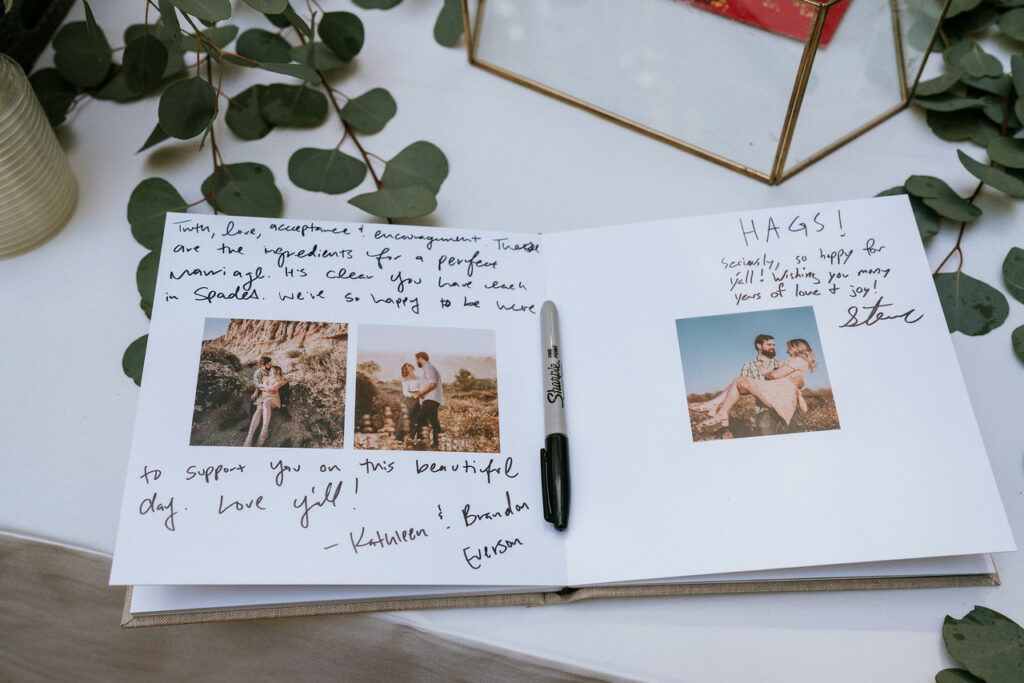 Truth, love, acceptance & encouragment. These
are the ingredients for a perfect
marriage. It's clear you have each
in Spades. We've so happy to be here
to support you on this beautiful
day. Love y'all!
- Kathleen & Brandon
Everson
HAGS!
Seriously, so happy for
y'all! Wishing you many
years of love & joy!
Steve
Sharpie